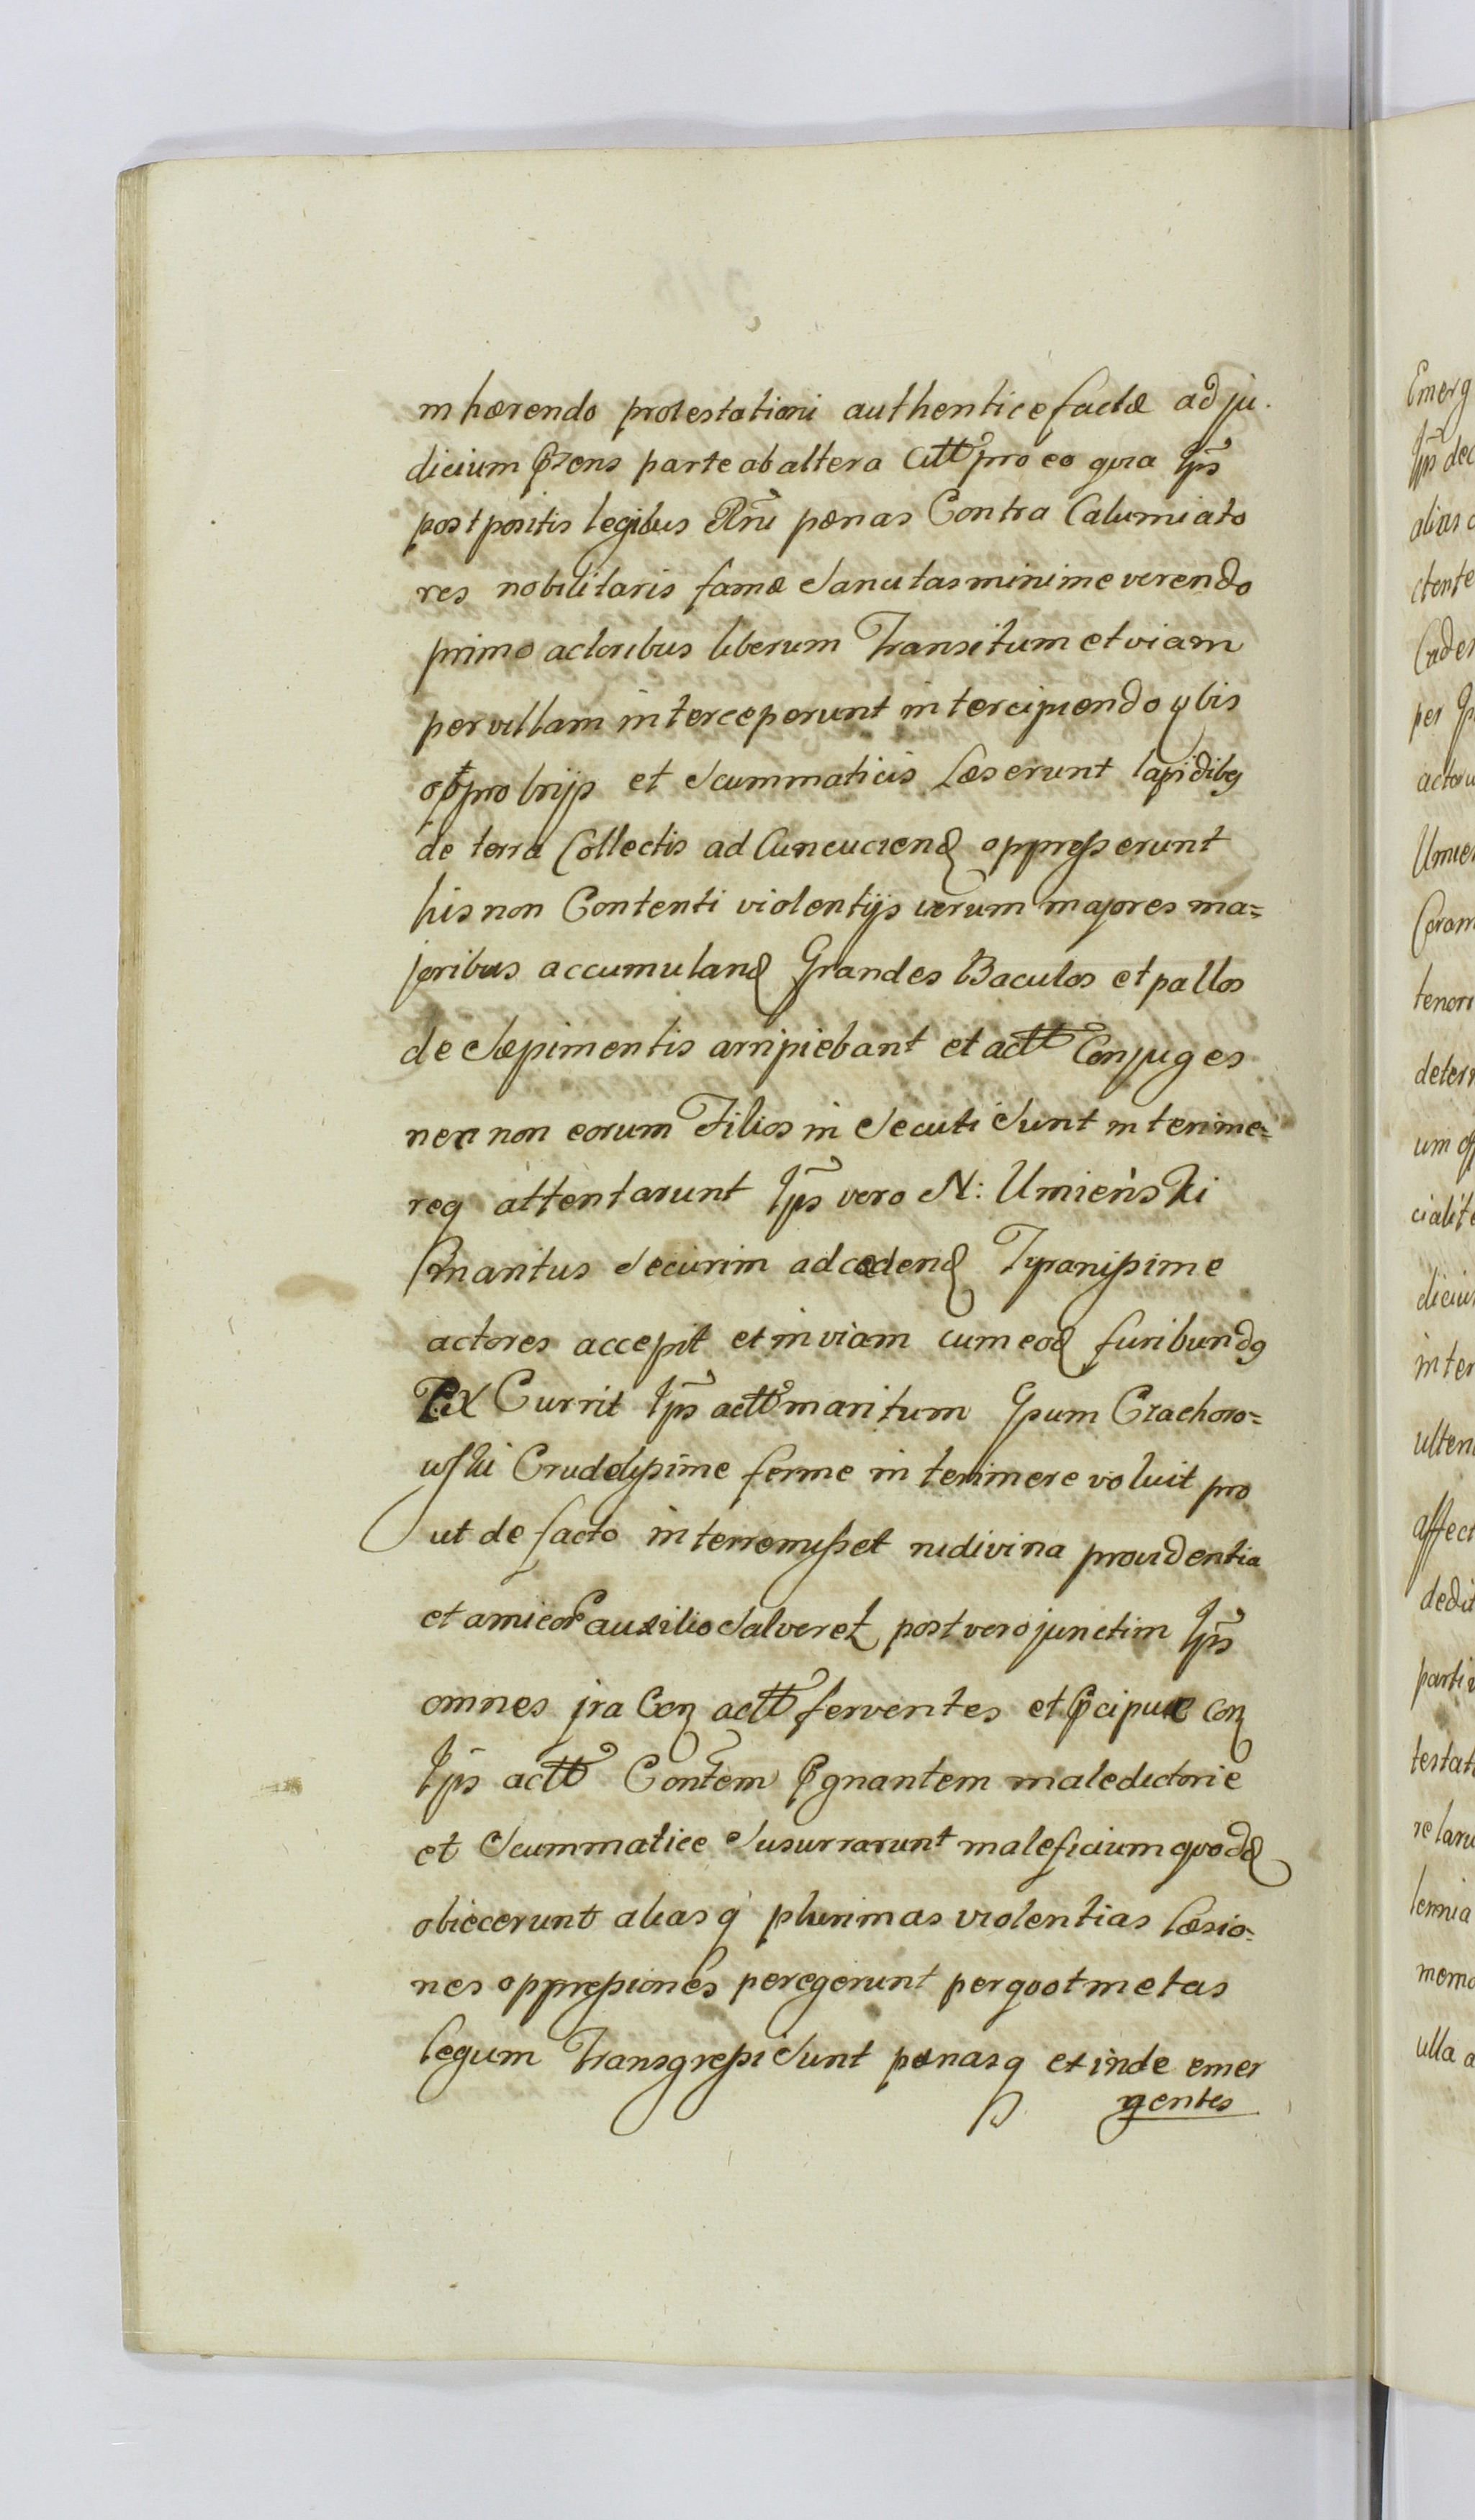 inhærendo protestationi authentice factæ ad ju-
dicium p̃sens parte ab altera Citt̃ pro eo quia Ip̃s
post positis legibus Rñi pænas Contra Calumiato
res nobilitaris famæ Sancitas minime verendo
primo actoribus liberum Transitum et viam
per villam interceperunt intercipiendo ỹbis
opprobrijs et Scummaticis Læserunt lapidibq
de terra Collectis ad Cuncuciend oppresserunt
his non Contenti violentijs verum majores ma=
joribus accumuland Grandes Baculos et pallos
de Sæpimentis arripiebant et actt̃ Conjuges
nec non eorum Filios in Secuti Sunt interime=
req attentarunt Ip̃s vero N: Umieński
maritus Securim ad cædend Tyranissime
actores accepit et in viam cum eod furibundq
Ex Currit Ip̃s actt̃ maritum Ipsum Czachoro=
wski Crudelissime ferme interimere voluit pro
ut de facto interremisset ni divina providentia
et amicor auxilio Salveret post vero junctim Ip̃s
omnes jra Con actt̃ ferventes et p̃cipue con
Ip̃s actt̃ Contem p̃gnantem maledictorie
et Scummatice Susurrarunt maleficium quodd
obiecerunt alias q̃ plurimas violentias læsio=
nes oppressiones peregerunt per quot metas
legum Transgressi Sunt pænasq et inde emer
gentes
Emerg
Ip̃s dec
alias c
per Ip
actor
Umień
Coram
tenor
deter
um
cialite
diciu
inter
ulten
affect
dedit
parti
testat
lemnia
ulla a